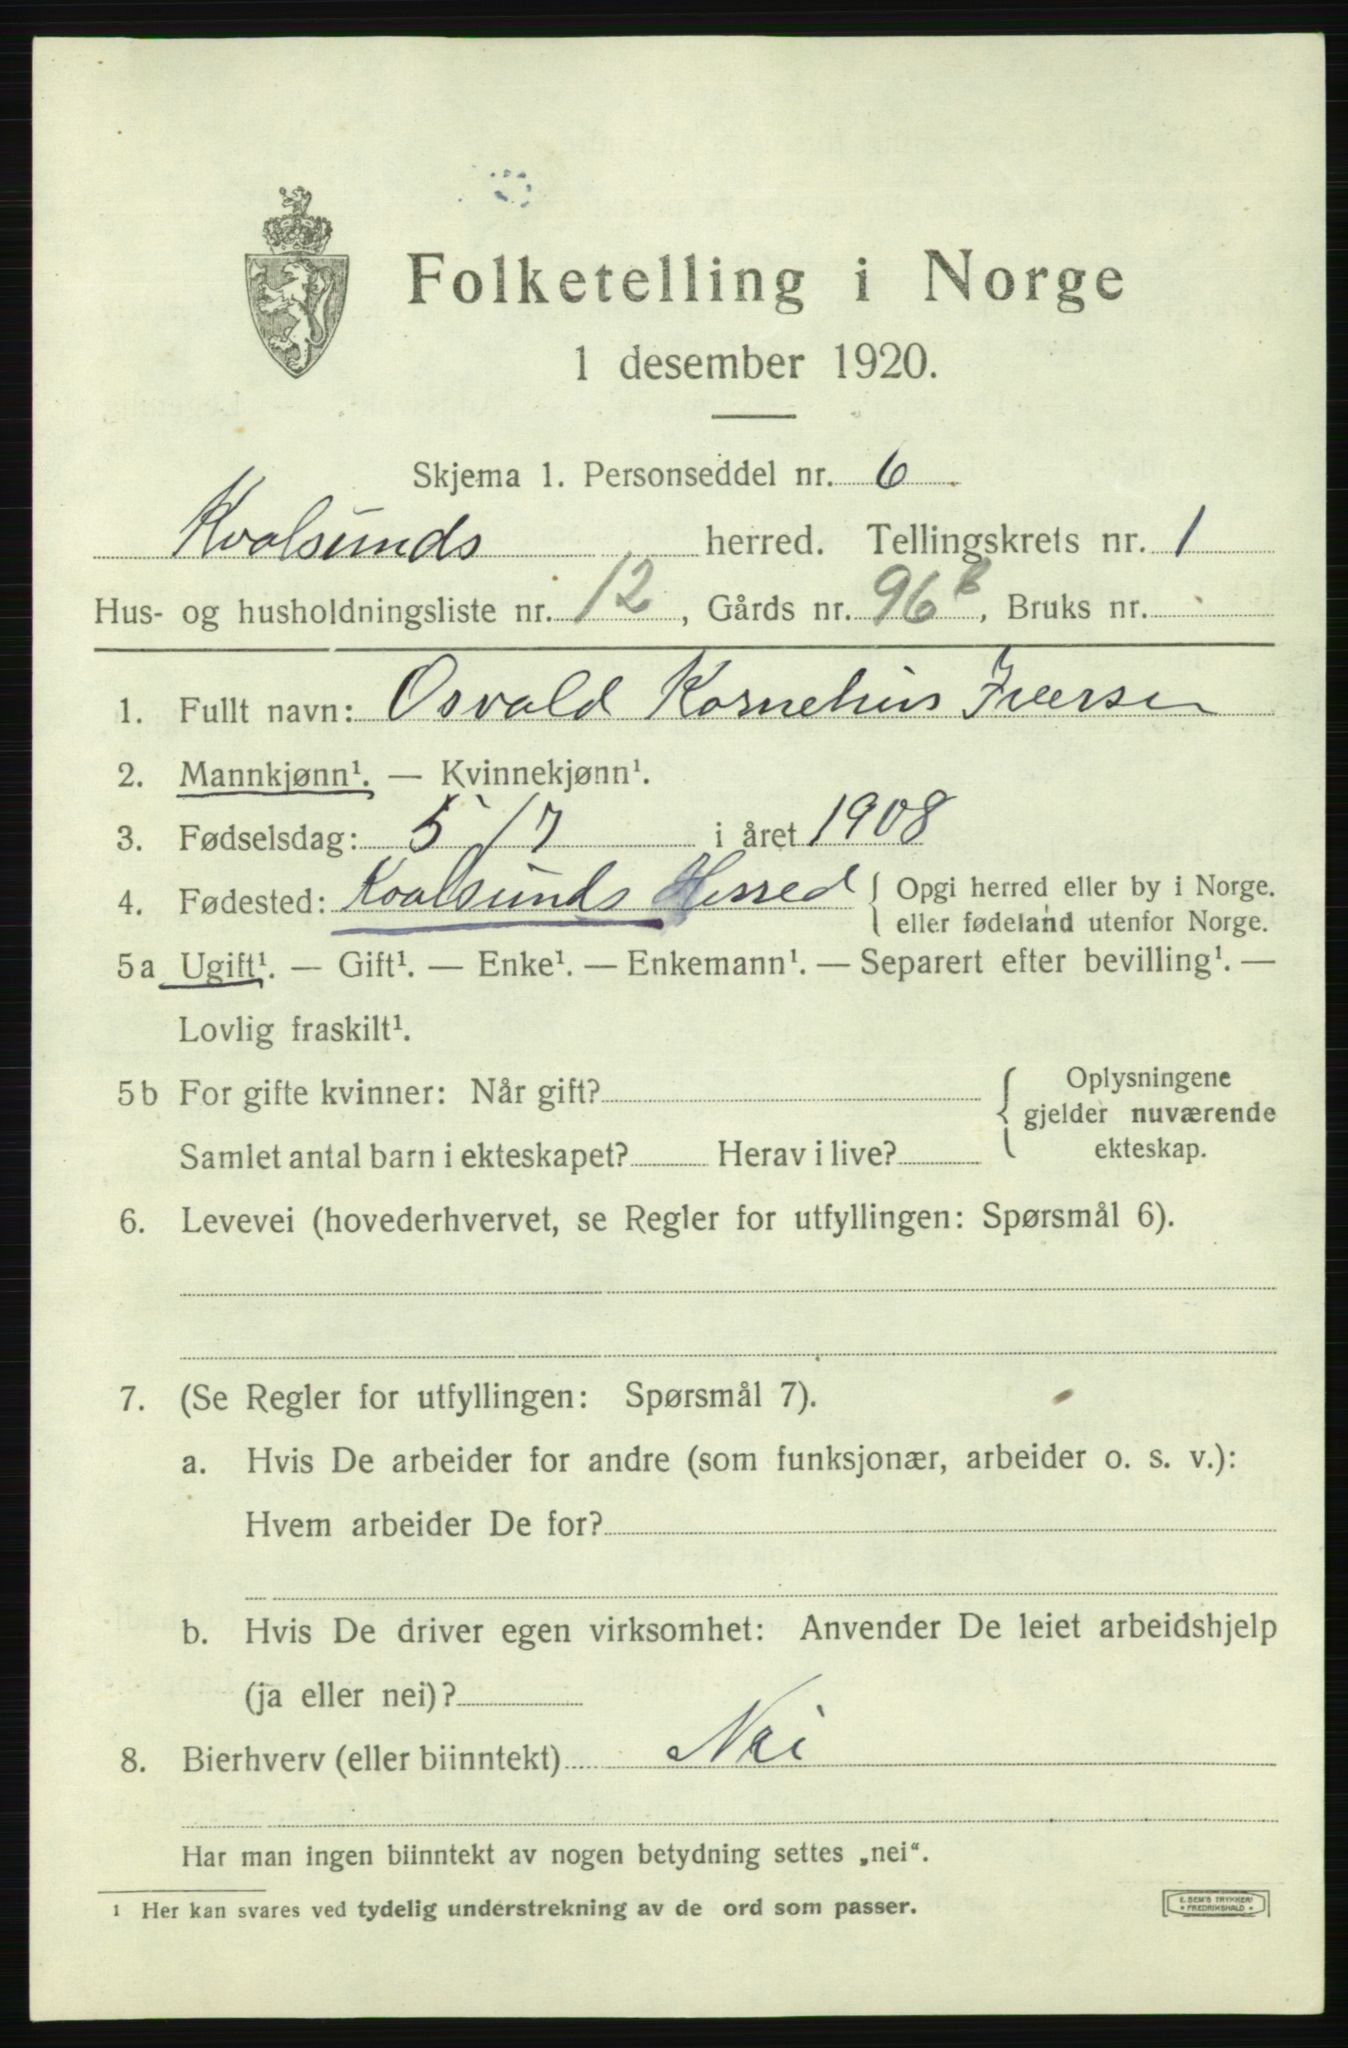 Folketelling i Norge
1 desember 1920.
Skjema 1. Personseddel nr. 6
Kvalsunds herred. Tellingskrets nr. 1
Hus- og husholdningsliste nr. 12, Gårds nr. 96 b, Bruks nr.
1. Fullt navn: Osvald Kornelius Iversen
2. Mannkjønn¹. — Kvinnekjønn¹.
3. Fødselsdag: 5/7 i året 1908
4. Fødested: Kvalsunds Herred { Opgi herred eller by i Norge.
eller fødeland utenfor Norge.
5a Ugift¹. — Gift¹. — Enke¹. — Enkemann¹. — Separert efter bevilling¹. —
Lovlig fraskilt¹.
5b For gifte kvinner: Når gift? { Oplysningene
gjelder nuværende
Samlet antal barn i ekteskapet? Herav i live? ekteskap.
6. Levevei (hovederhvervet, se Regler for utfyllingen: Spørsmål 6).
7. (Se Regler for utfyllingen: Spørsmål 7).
a. Hvis De arbeider for andre (som funksjonær, arbeider o. s. v.):
Hvem arbeider De for?
b. Hvis De driver egen virksomhet: Anvender De leiet arbeidshjelp
(ja eller nei)?
8. Bierhverv (eller biinntekt) Nei
Har man ingen biinntekt av nogen betydning settes „nei“.
1 Her kan svares ved tydelig understrekning av de ord som passer.
E. SEM'S TRYKKERI
FREDRIKSHALD